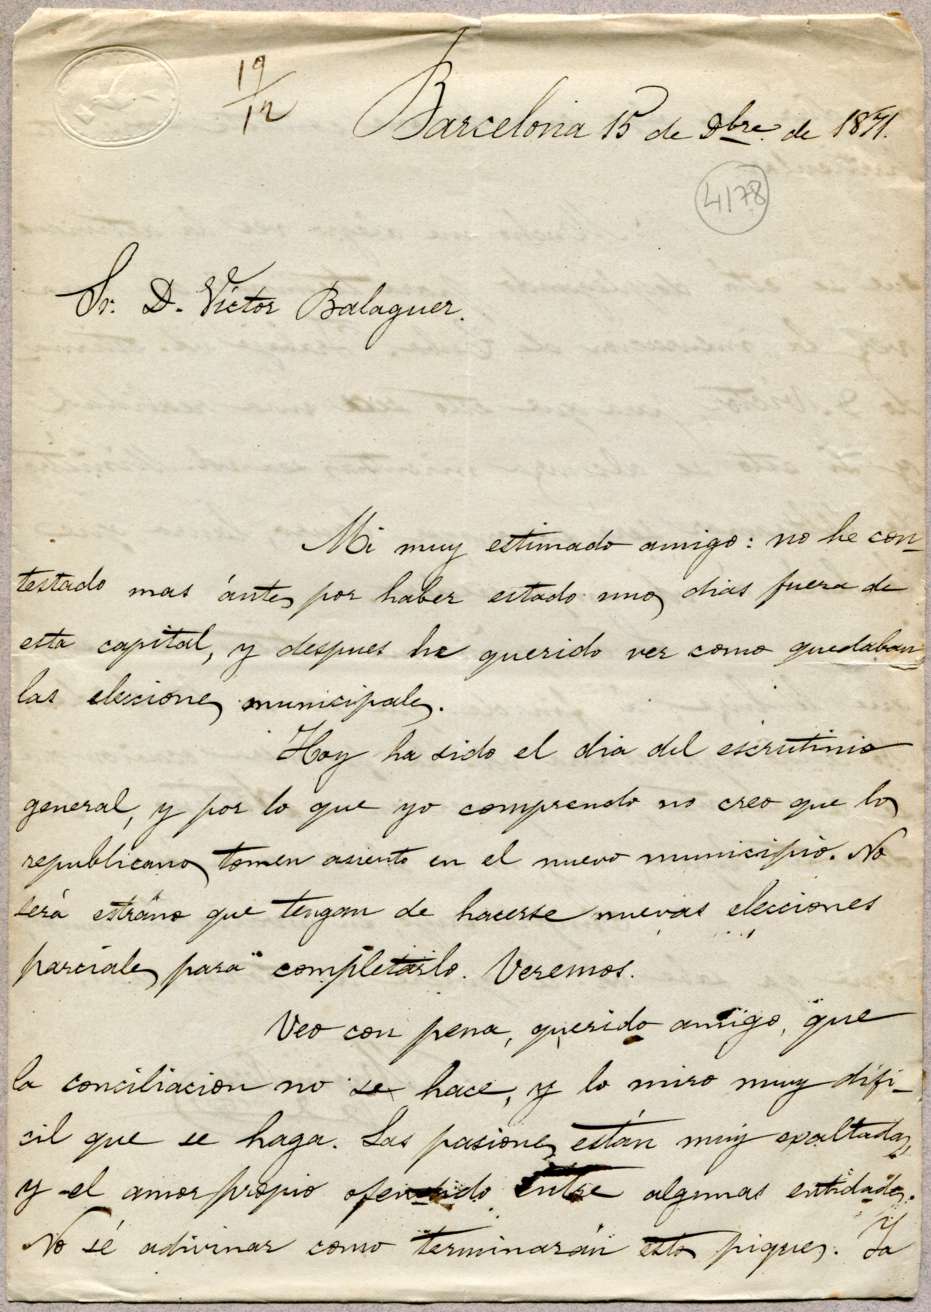 19/12
Barcelona 15 de Dbre. de 1871.
4178
Sr. D. Victor Balaguer.
Mi muy estimado amigo: no he con-
testado mas ántes por haber estado unos dias fuera de
esta capital, y despues he querido ver como quedaban
las elecciones municipales.
Hoy ha sido el dia del escrutinio
general, y por lo que yo comprendo no creo que los
republicanos tomen asiento en el nuevo municipio. No
será estraño que tengan de hacerse nuevas elecciones
parciales para completarlo. Veremos.
Veo con pena, querido amigo, que
la conciliacion no se hace, y lo miro muy difi-
cil que se haga. Las pasiones están muy exaltadas
y el amor propio ofendido entre algunas entidades.
No sé adivinar como terminarán estos piques. Ya